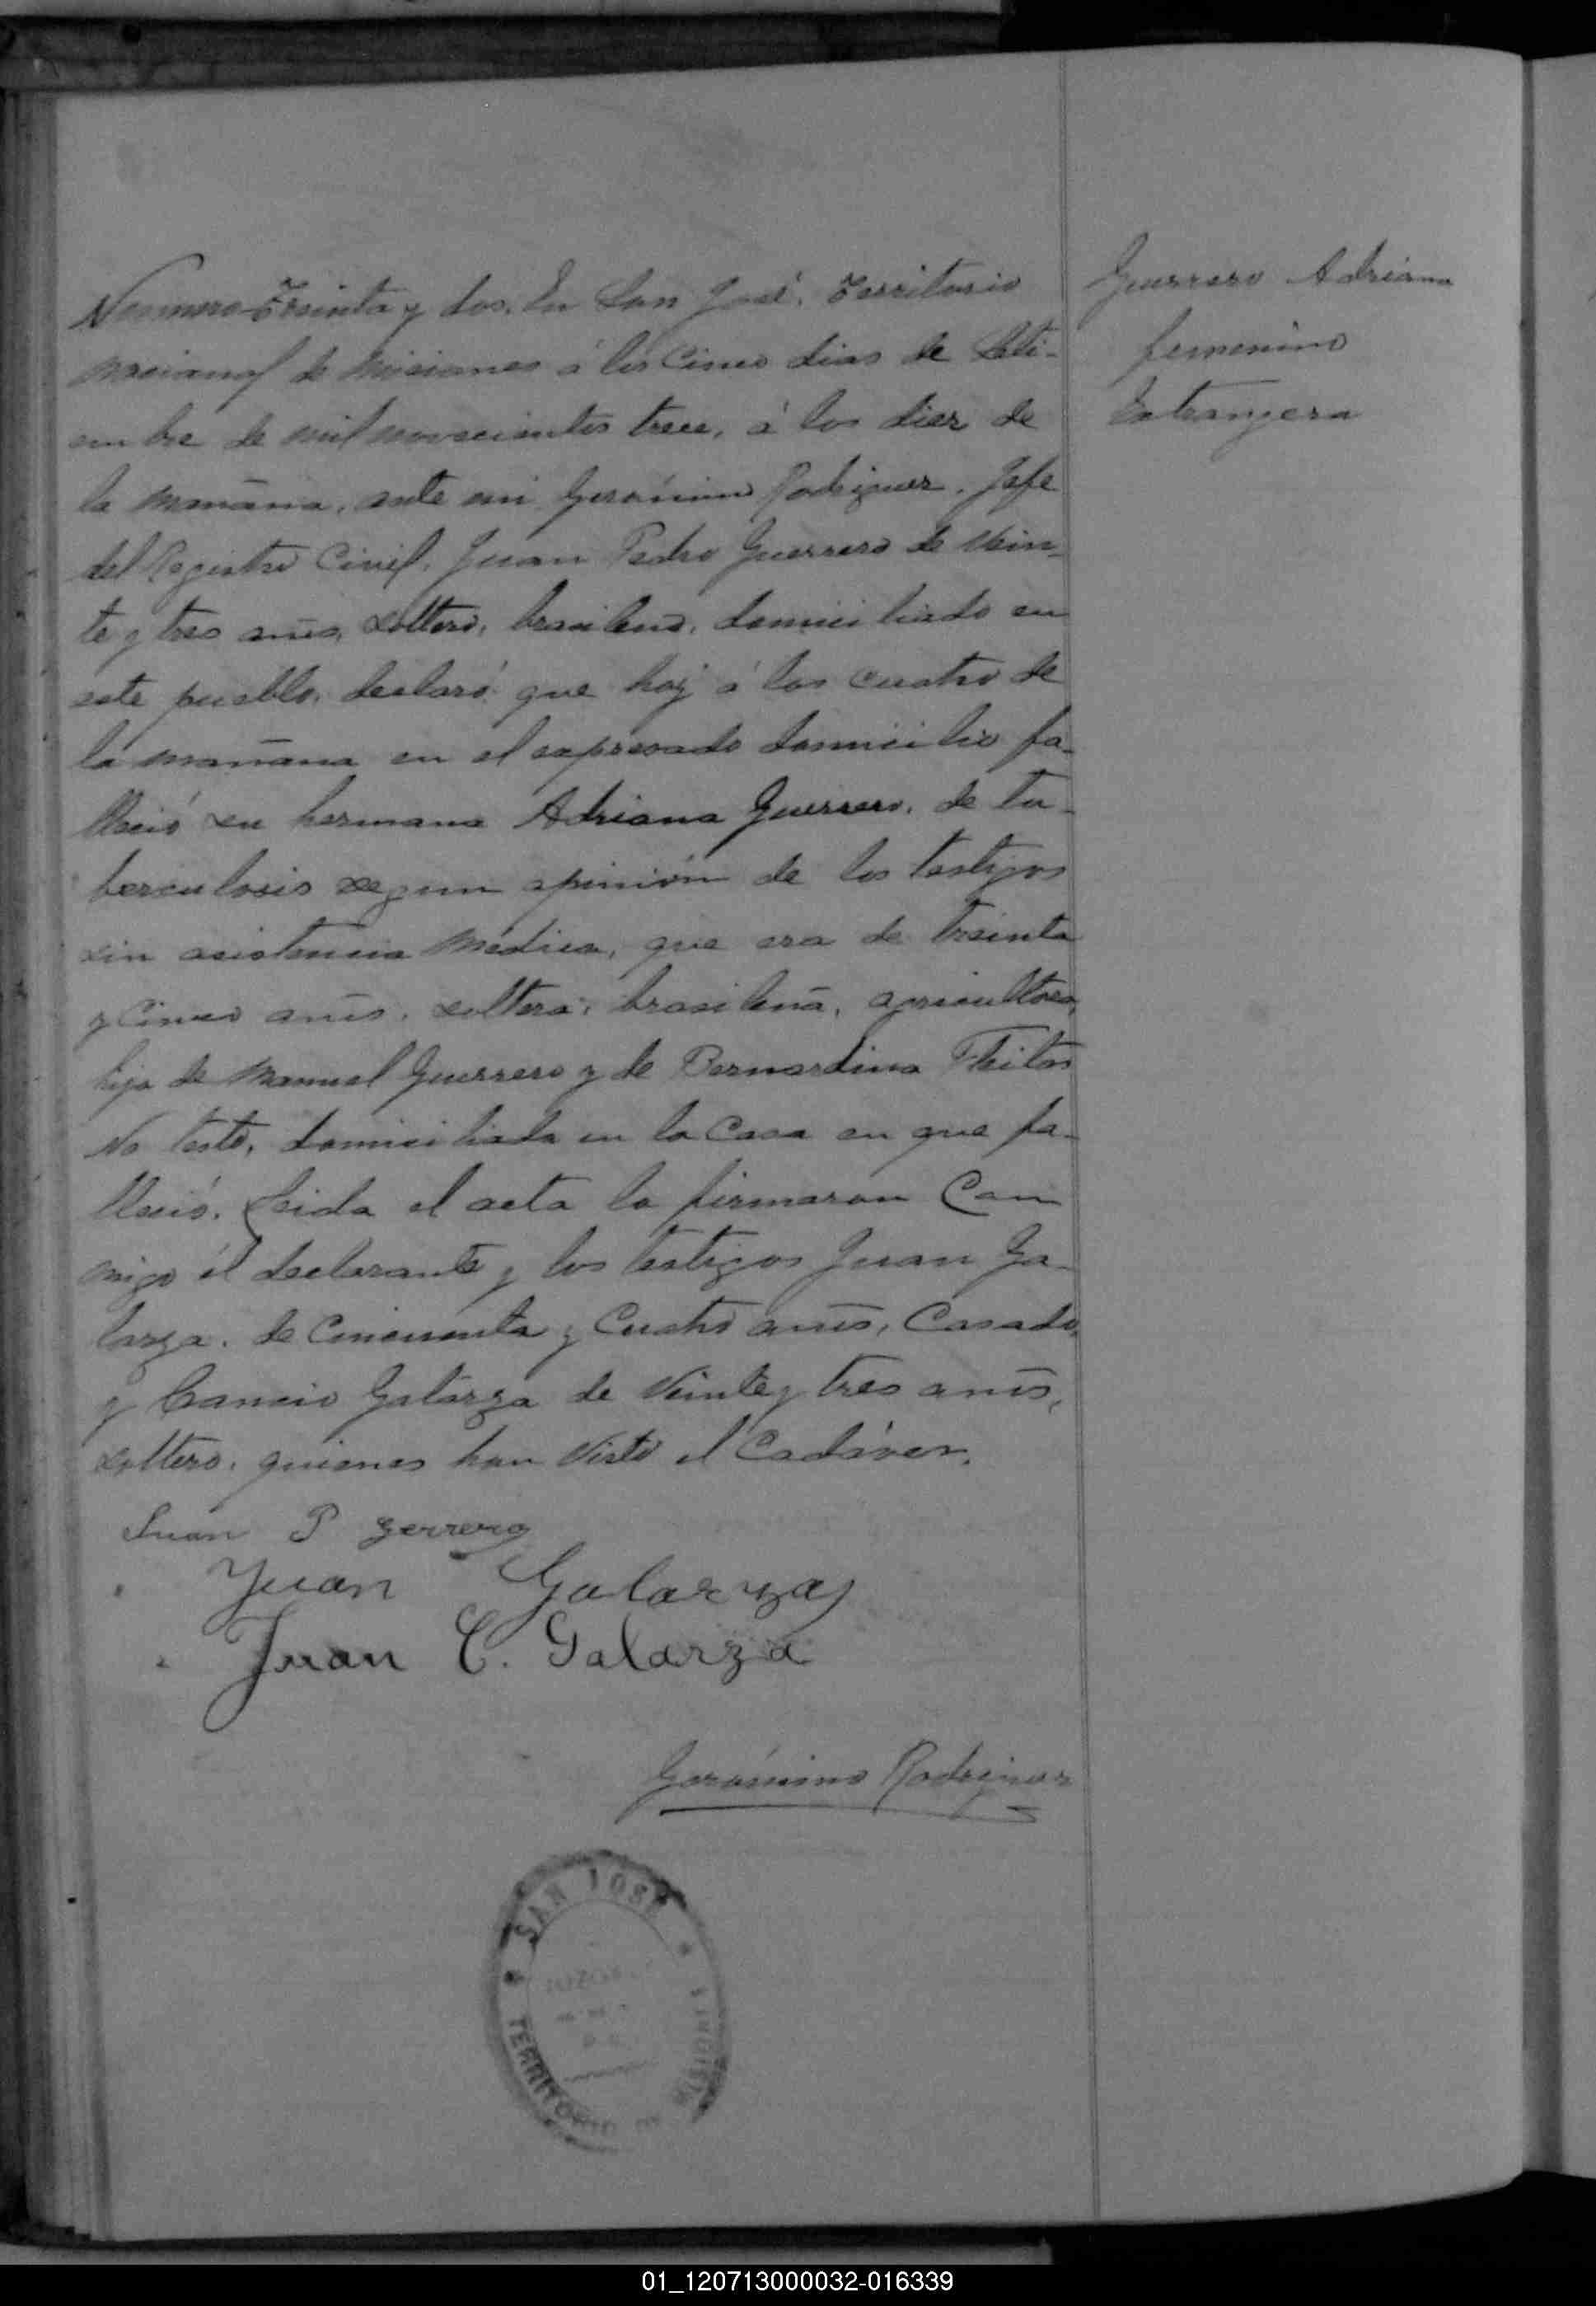 Numero Treinta y dos. En San José, Territorio
nacional de Misiones á los Cinco dias de Seti-
embre de mil novecientos trece, á las diez de
la mañana, ante mi Gerónimo Rodriguez, Jefe
del Registro Civil, Juan Pedro Guerrero de Vein-
te y tres años, soltero, brasileño, domiciliado en
este pueblo, declaró que hoy á las cuatro de
la mañana en el expresado domicilio fa-
lleció su hermana Adriana Guerrero, de tu-
berculosis segun opinión de los testigos
sin asistencia médica, que era de treinta
y Cinco años, soltera, brasileña, agricultora,
hija de Manuel Guerrero y de Bernardina Fleitas
No testó, domiciliada en la Casa en que fa-
lleció. Leida el acta la firmaron Con
migo él declarante y los testigos Juan Ga-
larza, de Cincuenta y Cuatro años, Casado,
y Cancio Galarza de Veinte y tres años,
soltero, quienes han Visto el Cadáver.
Juan P Gerrero
Juan Galarza
Juan C. Galarza
Gerónimo Rodriguez
SAN JOSÉ
TERRITORIO DE MISIONES
Guerrero Adriana
femenino
Extrangera
01_120713000032-016339